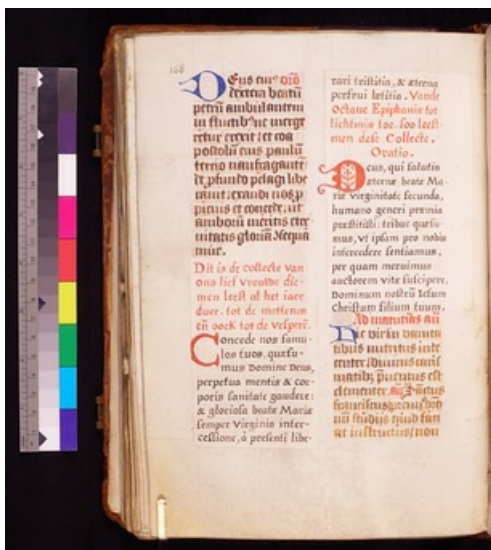 168
Deus cuius oro
dextera beatū
petrū ambulantem
in fluctib' ne merge
retur erexit: et coa
postolū eius paulū
tercio naufragantē
de pfundo pelagi libe
rauit: exaudi nos p
picius et concede, ut
amborū meritis eter
nitatis gloriā 2sequa
mur.
Dit is de collecte van
ons lief vrouwe die-
men leest al het iaer
duer. tot de mettenen
eñ oock tot de vesperē.
Concede nos famu-
los tuos, quęsu-
mus Domine Deus,
perpetua mentis & cor-
poris sanitate gaudere:
& gloriosa beatæ Mariæ
semper Virginis inter-
cessione, à præsenti libe-
rari tristitia, & æterna
perfrui lætitia. Vande
Octaue Epiphaniæ tot
lichtmis toe. soo leest-
men dese Collecte.
Oratio.
Deus, qui salutis
æternæ beatæ Ma-
riæ virginitate fecunda,
humano generi præmia
præstitisti: tribue quęsu-
mus, vt ipsam pro nobis
intercedere sentiamus,
per quam meruimus
auctorem vitæ suscipere,
Dominum nostrū Iesum
Christum filium tuum.
Ad matutinas
clementer.
franciscus